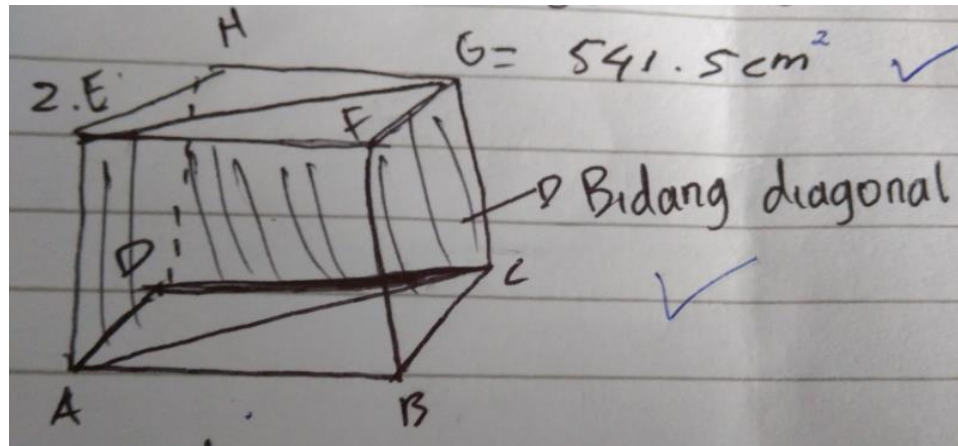 H
G = 541.5 cm²
2. E
F
Bidang diagonal
D
C
A
B